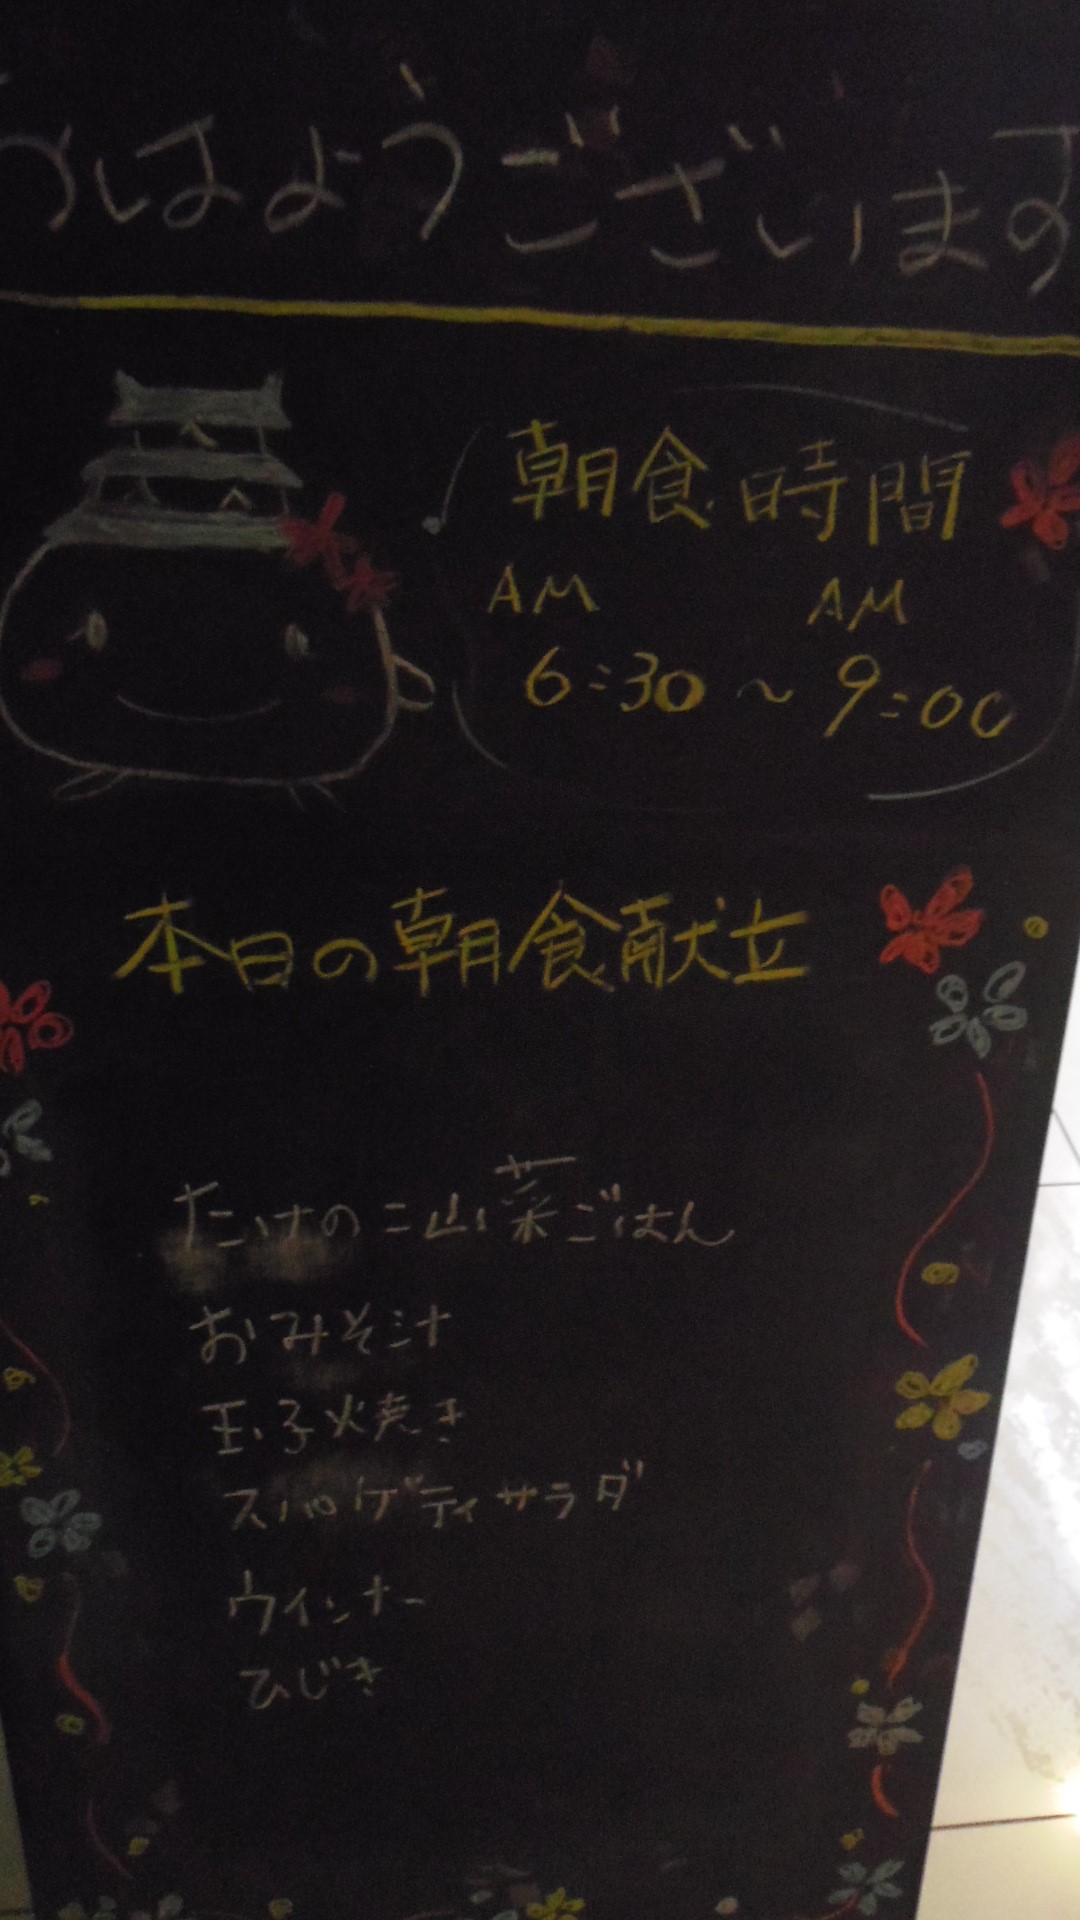 おはようございます
朝食時間
AM AM
6:30~9:00
本日の朝食献立
たけのこ山菜ごはん
おみそ汁
玉子焼き
スパゲティサラダ
ウインナー
ひじき